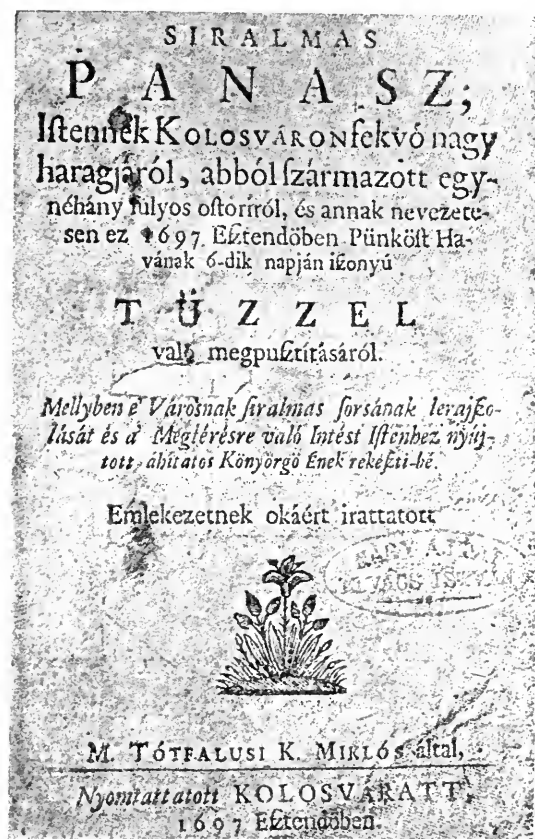 SIRALMAS
PANASZ;
Iſtennek KOLOSVÁRON fekvő nagy
haragjáról, abból ſzármazott egy-
néhány ſúlyos oſtoriról, és annak nevezete-
sen ez 1697 Eſztendöben Pünköſt Ha-
vának 6-dik napján iſzonyú
TÜZZEL
való megpuſztításáról.
Mellyben e' Városnak ſiralmas ſorsának lerajſzo-
lását és a' Megtérésre való Intést Iſtenhez nyúj-
tott áhítatos Könyörgö Ének rekeſzti-bé.
Emlekezetnek okáért irattatott
M. TÓTFALUSI K. MIKLÓS által,
Nyomtattatott KOLOSVÁRATT,
1697 Eſztendöben.